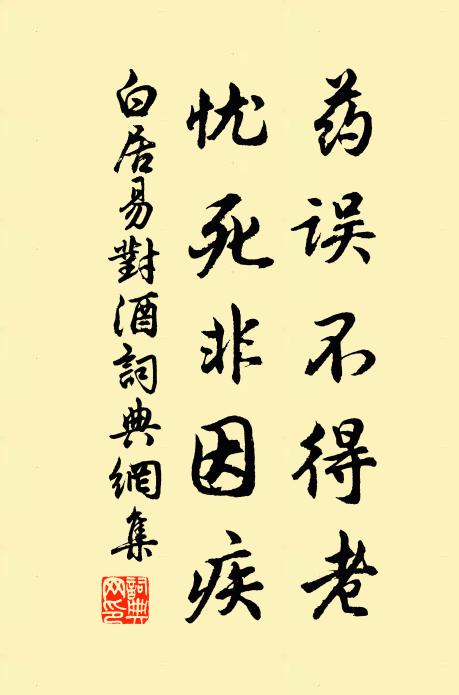 药误不得老
忧死非因疾
白居易對酒詞典網集
詞典網印